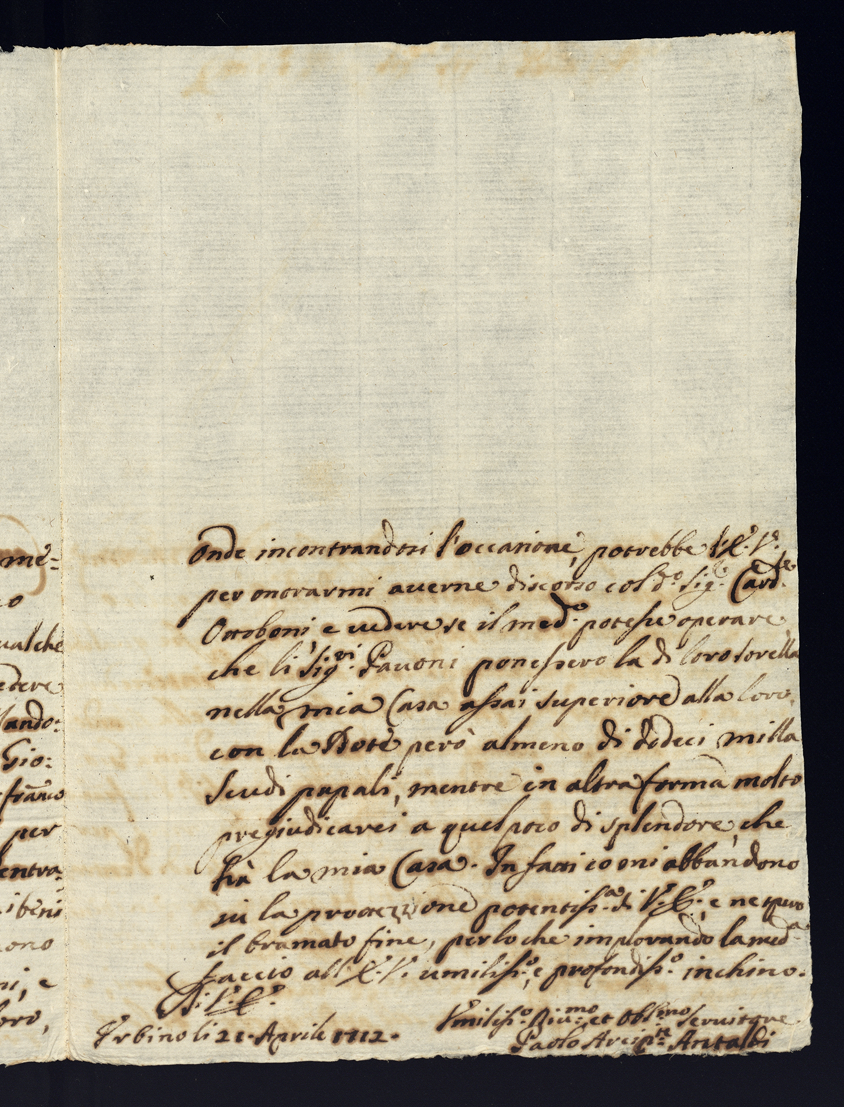 me=
co
ualche
edere
ando:
Gio:
franco
per
entra=
i beni
ono
ni, e
loro,
Onde incontrandosi l'occasione, potrebbe V. E.
per onorarmi averne discorso col d.º Sig.r Card.le
Ottoboni, e vedere se il med.º potesse operare
che li Sig.ri Pavoni ponessero la di loro sorella
nella mia Casa assai superiore alla loro
con la Dote però almeno di dodeci milla
Scudi papali, mentre in altra forma molto
pregiudicarei a quel poco di splendore, che
hà la mia Casa. In fatti io mi abbandono
sù la protezzione potentiss.a di V. E., e ne spero
il bramato fine, perloche implorando la med.a
faccio all'E. V. umiliss.º, e profondiss.º inchino.
Di V. E.
Urbino li 21. Aprile 1712.
Umiliss.º Div.mo et Obl.mo Servitore
Paolo Antaldi